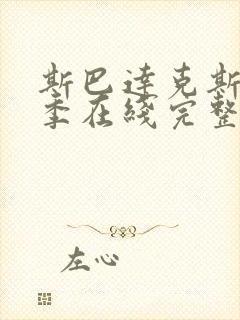 斯巴达克斯
季在线完整
左心